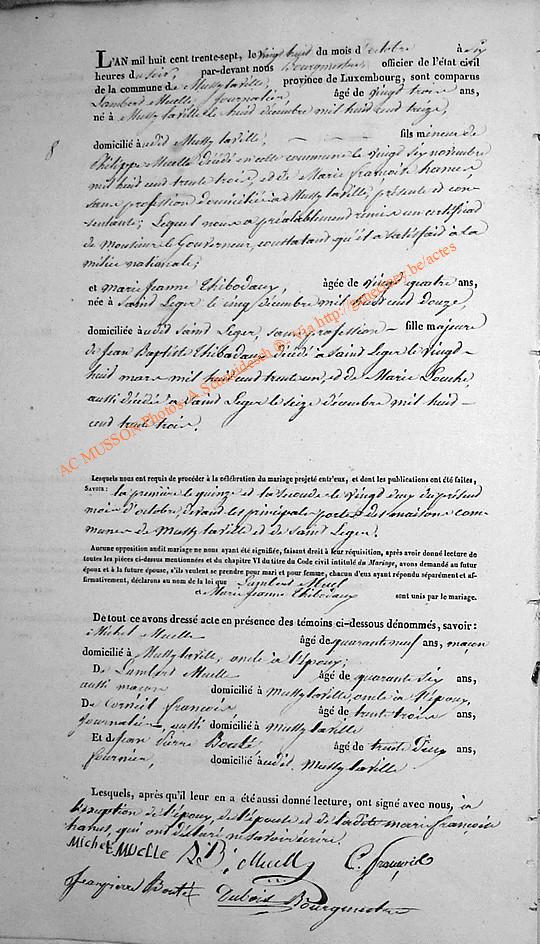 L'AN mil huit cent trente-sept, le vingt huit du mois d'octobre à six
heures du soir, par-devant nous Bourgmestre officier de l'état civil
de la commune de Mussy laville, province de Luxembourg, sont comparus
Lambert Muelle, journalier, âgé de vingt trois ans,
né à Mussy laville le huit décembre mil huit cent treize,
8
domicilié audit Mussy laville, fils mineur de
Philippe Muelle décédé en cette commune le vingt six novembre
mil huit cent trente trois, et de Marie françoise hanus
sans profession domiciliée à Mussy laville, présente et con-
sentante; Lequel nous a préalablement remis un certificat
de Monsieur le Gouverneur, constatant qu'il a satisfait à la
milice nationale;
et marie jeanne Thibodaux, âgée de vingt quatre ans,
née à Saint Leger le cinq décembre mil huit cent douze,
domiciliée audit Saint Leger, sans profession – fille majeure
de Jean Baptiste Thibadaux décédé à Saint Leger le vingt-
huit mars mil huit cent trente un, et de Marie
aussi décédée à Saint Leger le seize décembre mil huit –
cent trente trois,
AC MUSSON Photos: A Schneidesch ©- Via http://geneenet.be/actes
Lesquels nous ont requis de procéder à la célébration du mariage projeté entr'eux, et dont les publications ont été faites,
SAVOIR: la première le quinze et la seconde le vingt deux du présent
mois d'octobre, devant les principales portes des maisons com-
munes de Mussy laville et de Saint Leger.
Aucune opposition audit mariage ne nous ayant été signifiée, faisant droit à leur réquisition, après avoir donné lecture de
toutes les pièces ci-dessus mentionnées et du chapitre VI du titre du Code civil intitulé du Mariage, avons demandé au futur
époux et à la future épouse, s'ils veulent se prendre pour mari et pour femme, chacun d'eux ayant répondu séparément et af-
firmativement, déclarons au nom de la loi que Lambert Muel
et Marie jeanne Thibodaux sont unis par le mariage.
De tout ce avons dressé acte en présence des témoins ci-dessous dénommés, savoir:
Michel Muelle âgé de quarante neuf ans, maçon
domicilié à Mussy laville, oncle à l'époux;
De Lambert Muelle âgé de quarante six ans,
aussi maçon domicilié à Mussy laville, oncle à l'époux,
De Corneil françois âgé de trente trois ans,
journalier, aussi domicilié à Mussy laville
Et de Jean Pierre Bouté âgé de trente deux ans,
fournier, domicilié audit Mussy laville
Lesquels, après qu'il leur en a été aussi donné lecture, ont signé avec nous, à
l'exception de l'époux, de l'épouse et de ladite marie françoise
hanus, qui ont déclaré ne savoir écrire.
Michel MUELLE Muell C. françois
Jeanpierre Bouté Dubois Bourgmestre